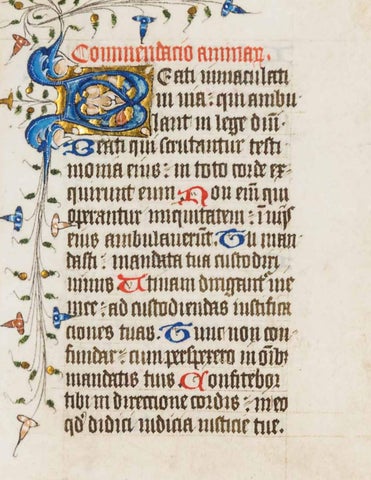 Commendacio animar.
Beati inmaculati
in uia: qui ambu
lant in lege dni.
Beati qui scrutantur testi
monia eius: in toto corde ex
quirunt eum Non eni qui
operantur iniquitatem: i uijs
eius ambulauerut. Tu man
dasti: mandata tua custodiri
nimis Utinam dirigantur uie
mee: ad custodiendas iustifica
ciones tuas. Tunc non con
fundar: cum perspexero in oibz
mandatis tuis Confitebor
tibi in direccione cordis: in eo
qd didici iudicia iusticie tue.